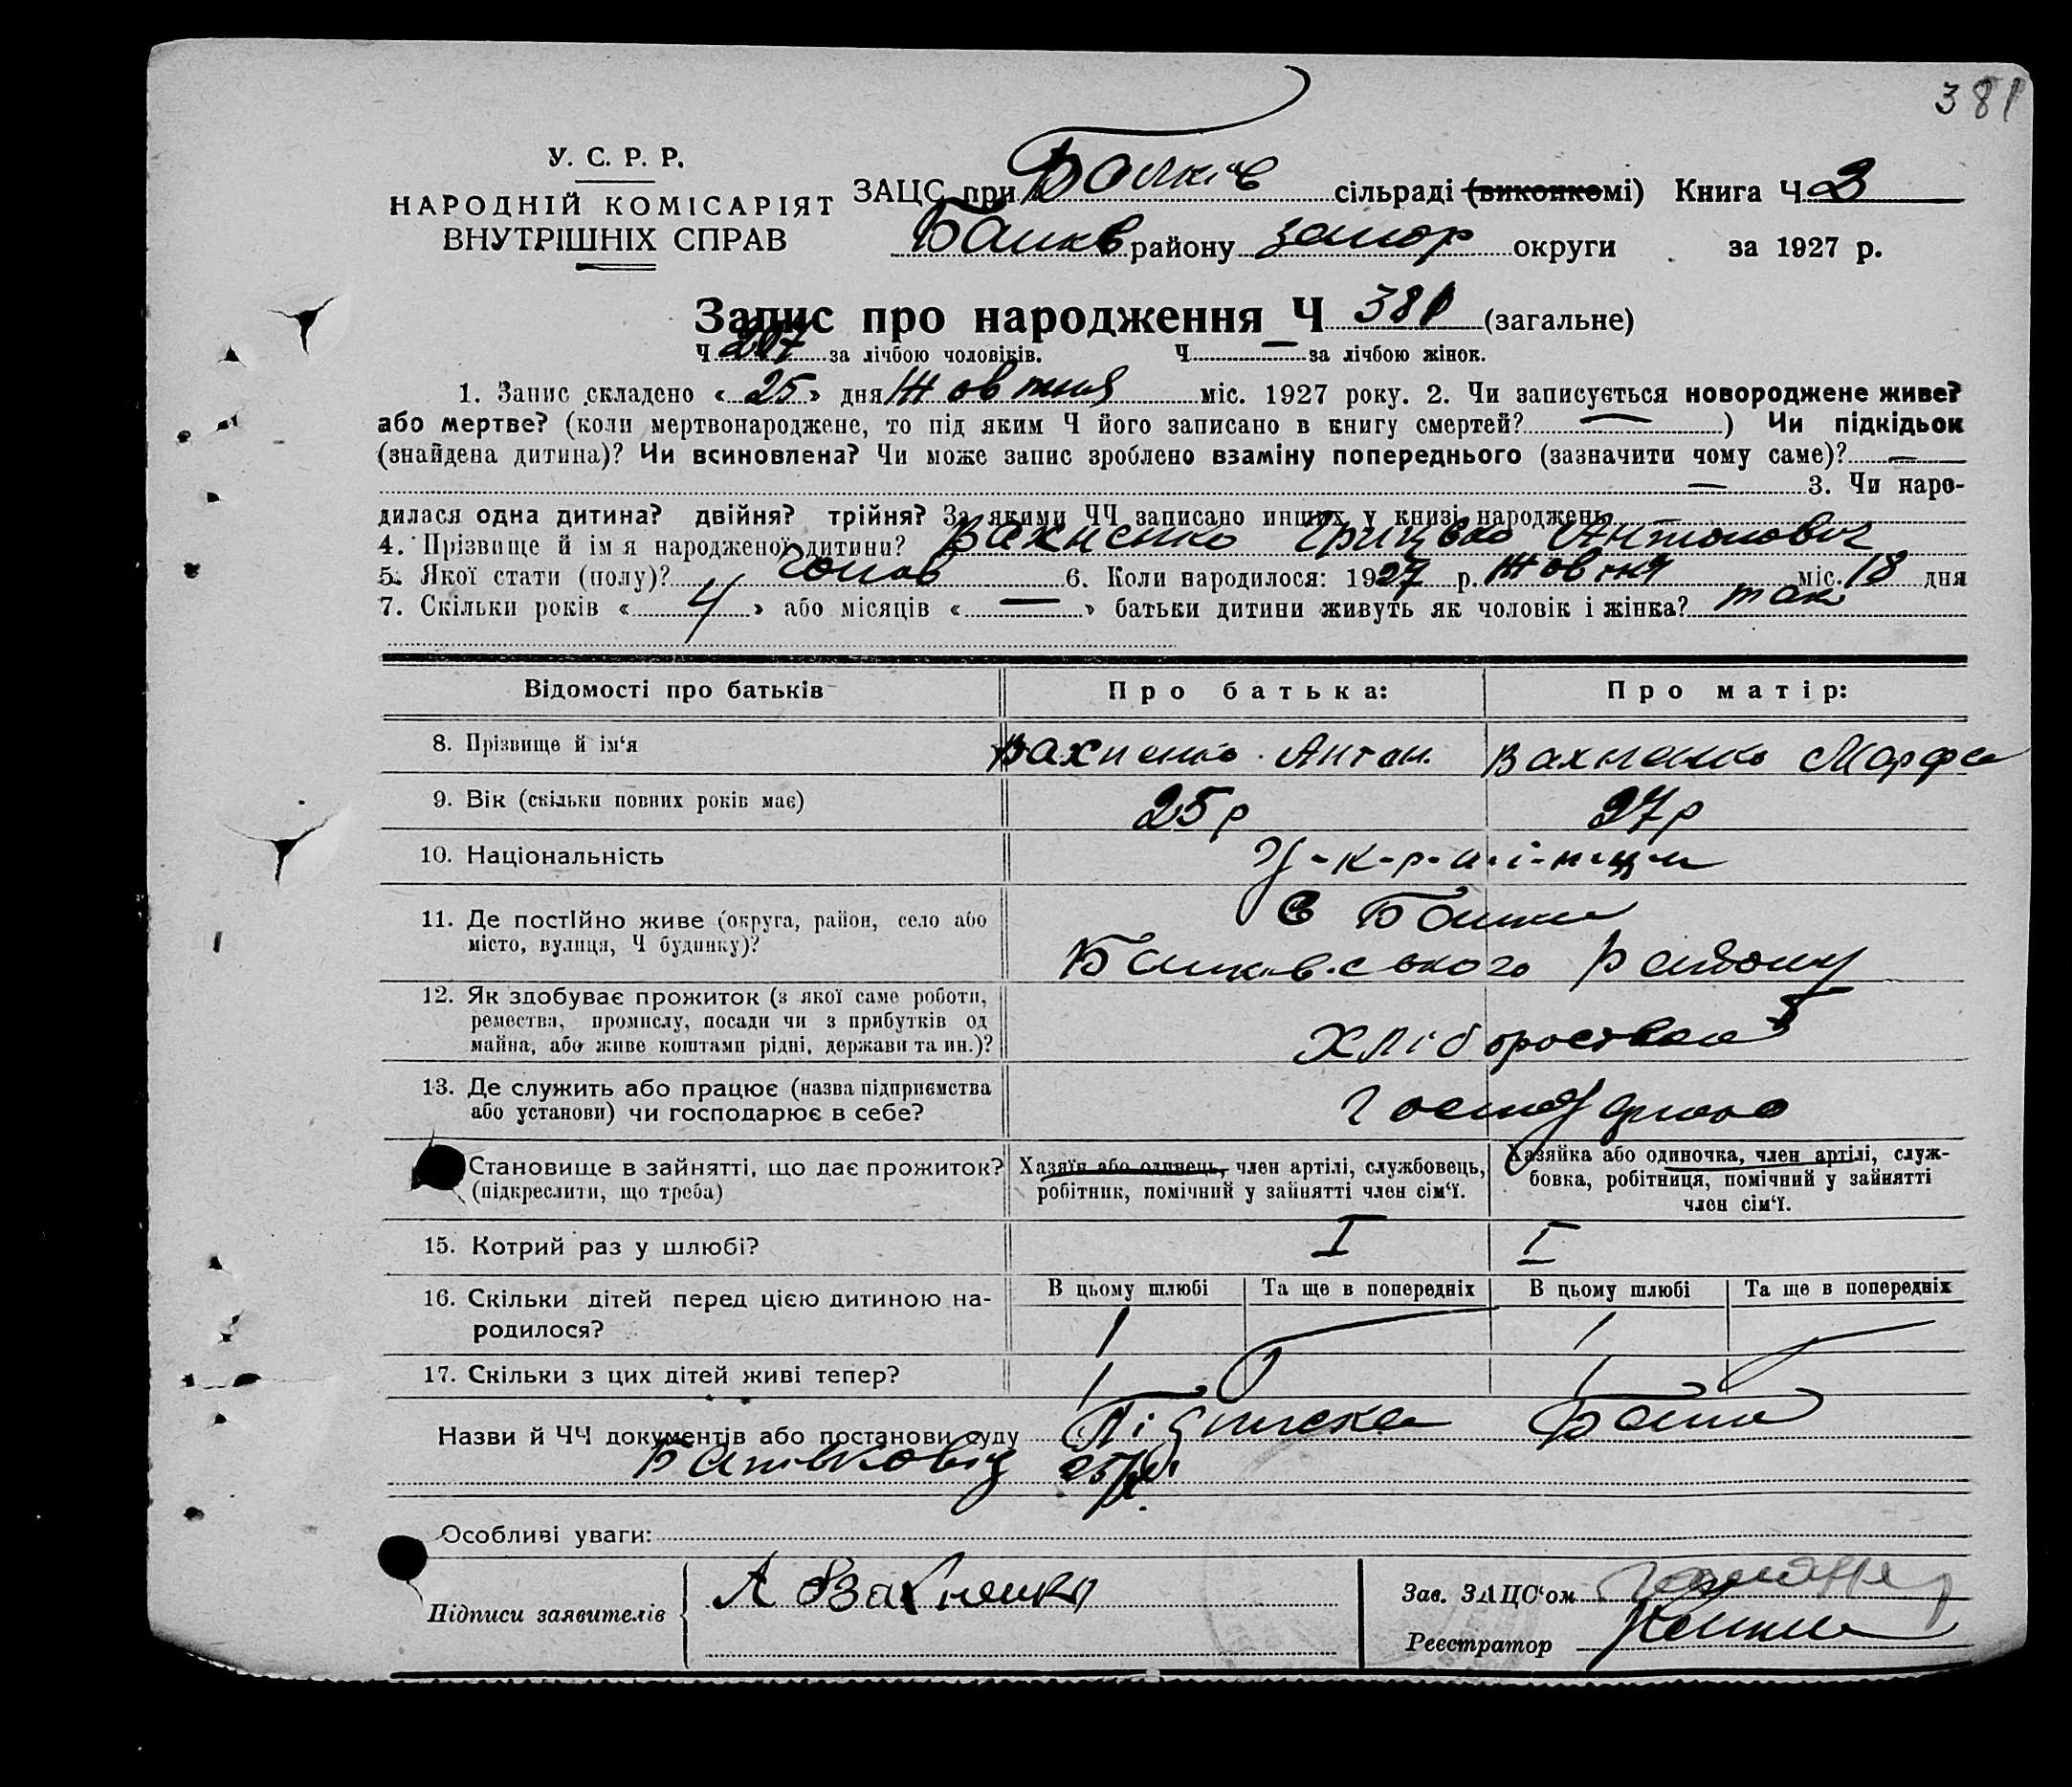 381
У. С. Р. Р.
НАРОДНІЙ КОМІСАРІЯТ
ВНУТРІШНІХ СПРАВ
ЗАЦС при Балків сільраді (виконкомі) Книга Ч 3
району Запор округи за 1927 р.
Запис про народження Ч 381 (загальне)
Ч 207 за лічбою чоловіків. Ч — за лічбою жінок.
1. Запис складено « 25 » дня Жовтня міс. 1927 року. 2. Чи записується новороджене живе?
або мертве? (коли мертвонароджене, то під яким Ч його записано в книгу смертей? — ) Чи підкідьок
(знайдена дитина)? Чи всиновлена? Чи може запис зроблено взаміну попереднього (зазначити чому саме)? —
— 3. Чи наро-
дилася одна дитина? двійня? трійня? За якими ЧЧ записано инших у книзі народжень
4. Прізвище й ім я народженої дитини? Вахненко Антонович
5. Якої стати (полу)? Чолов 6. Коли народилося: 1927 р. Жовтня міс. 18 дня
7. Скільки років « 4 » або місяців « — » батьки дитини живуть як чоловік і жінка? так
Відомості про батьків Про батька: Про матір:
8. Прізвище й ім'я Вахненко Антон. Вахненко Марфа
9. Вік (скільки повних років має) 25 р 27 р
10. Національність У-к-р-а-ї-н-ц-и
11. Де постійно живе (округа, район, село або
місто, вулиця, Ч будинку)? С Балки
Балків.ського району
12. Як здобуває прожиток (з якої саме роботи,
ремества, промислу, посади чи з прибутків од
майна, або живе коштами рідні, держави та ин.)?
13. Де служить або працює (назва підприємства
або установи) чи господарює в себе?
Становище в зайнятті, що дає прожиток?
(підкреслити, що треба)
Хазяїн або одинець, член артілі, службовець,
робітник, помічний у зайнятті член сім'ї.
Хазяйка або одиночка, член артілі, служ-
бовка, робітниця, помічний у зайнятті
член сім'ї.
15. Котрий раз у шлюбі? I I
В цьому шлюбі Та ще в попередніх В цьому шлюбі Та ще в попередніх
16. Скільки дітей перед цією дитиною на-
родилося? 1 1
17. Скільки з цих дітей живі тепер? 1 1
Назви й ЧЧ документів або постанови суду Підписка
Особливі уваги:
Підписи заявителів А Вахненко
Зав. ЗАЦС'ом
Реєстратор